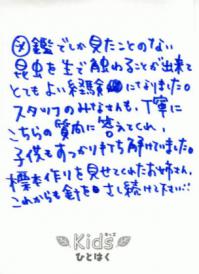 図鑑でしか見たことのない
昆虫を生で触わることが出来て
とてもよい経験になりました。
スタッフのみなさんも、丁寧に
こちらの質問に答えてくれ、
子供もすっかり打ち解けていました。
標本作りを見せてくれたお姉さん、
これからも針をさし続けて下さい…
Kids
キッズ
ひとはく